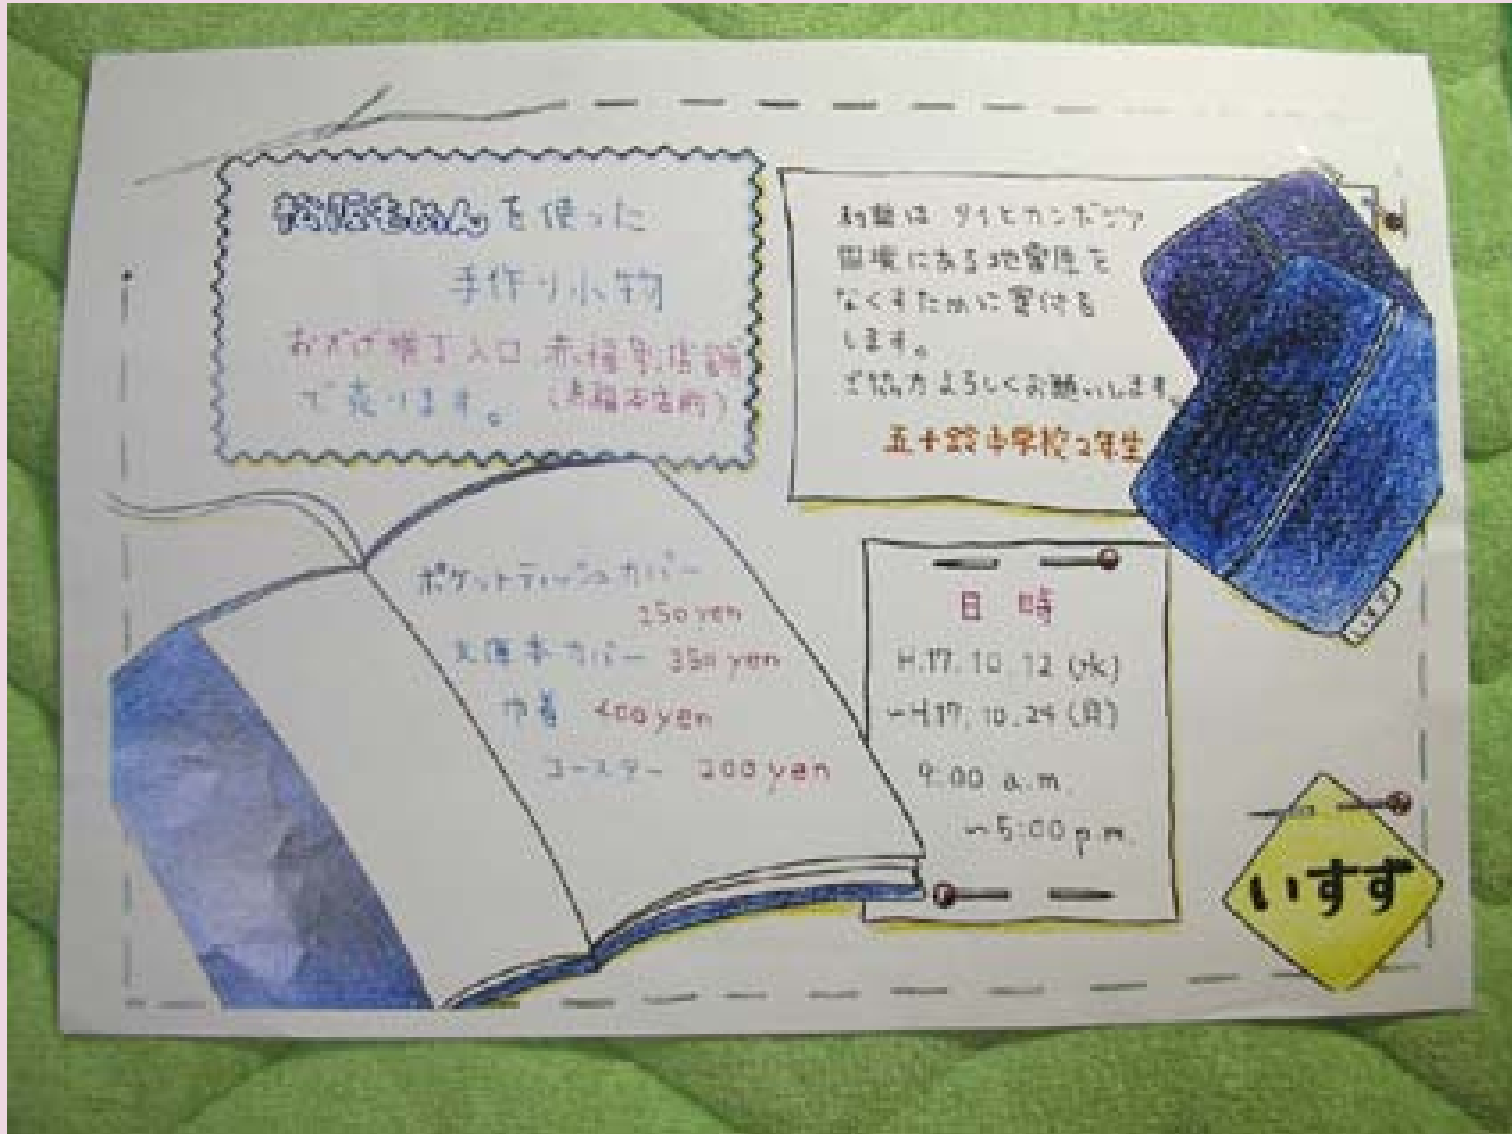 松阪もめんを使った
手作り小物
おかげ横丁入口 赤福別店舗
で売ります。(赤福本店前)
利益は タイとカンボジア
国境にある地雷原を
なくすために寄付を
します。
ご協力よろしくお願いします。
五十鈴中学校2年生
ポケットティッシュカバー
250 yen
文庫本カバー 350 yen
巾着 400 yen
コースター 200 yen
日時
H.17.10.12 (水)
~H.17.10.24 (月)
9:00 a.m.
~5:00 p.m.
いすず